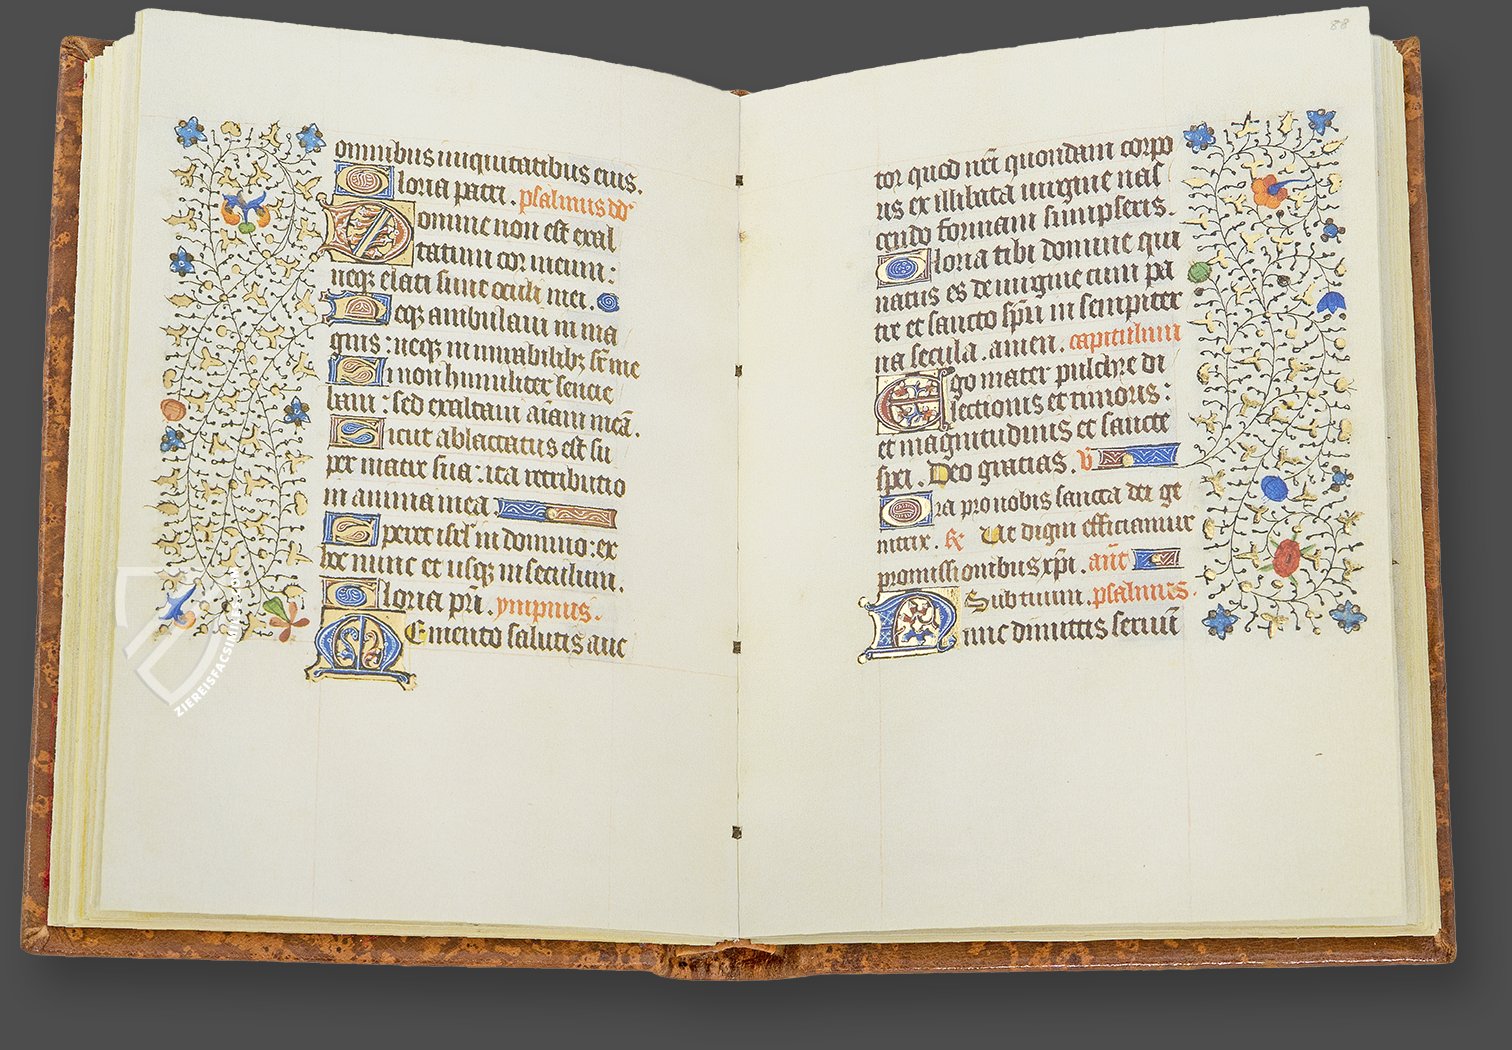 omnibus iniquitatibus eius.
Gloria patri. psalmus dd
Domine non est exal
tatum cor meum:
neq; elati sunt oculi mei.
Neq; ambulaui in ma
gnis: neq; in mirabilib; sr me
Si non humiliter sencie
bam: sed exaltaui aīam meā.
Sicut ablactatus est su
per matre sua: ita retributio
in anima mea.
Speret isrl in domino: ex
hoc nunc et usq; in seculum.
Gloria pri. ympnus.
Memento salutis auc
88
tor quod nri quondam corpo
ris ex illibata uirgine nas
cendo formam sumpseris.
Gloria tibi domine qui
natus es de uirgine cum pa
tre et sancto spu in sempiter
na secula. amen. capitulum
Ego mater pulchre di
lectionis et timoris:
et magnitudinis et sancte
spei. Deo gratias. V
Ora pro nobis sancta dei ge
nitrix. R Ut digni efficiamur
promissionibus xpi. ant
Sub tuum. psalmus.
Nunc dimittis seruū
ZIEREISFACSIMILES.COM